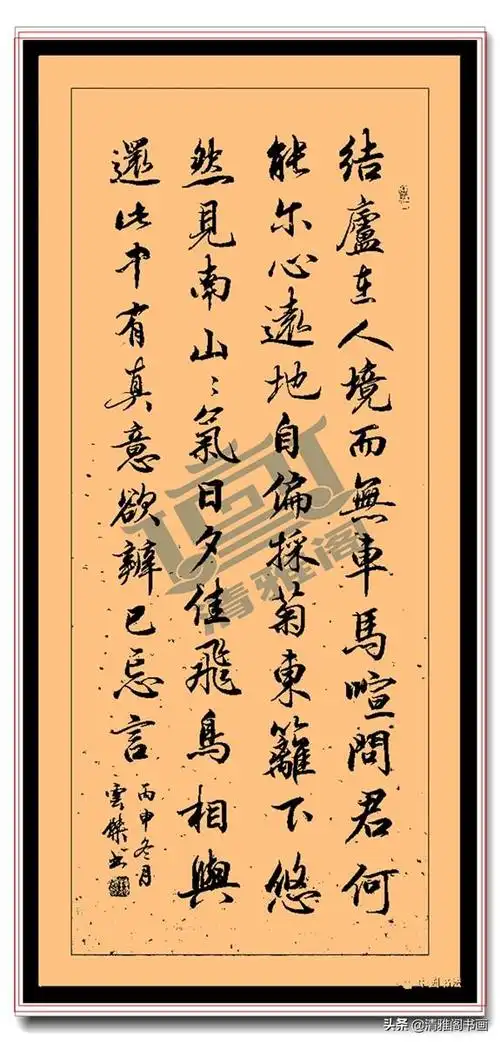 結廬在人境而無車馬喧問君何
能尔心遠地自偏採菊東籬下悠
然見南山〻氣日夕佳飛鳥相與
還此中有真意欲辨已忘言
丙申冬月
雲
清雅阁
头条 @清雅阁书画